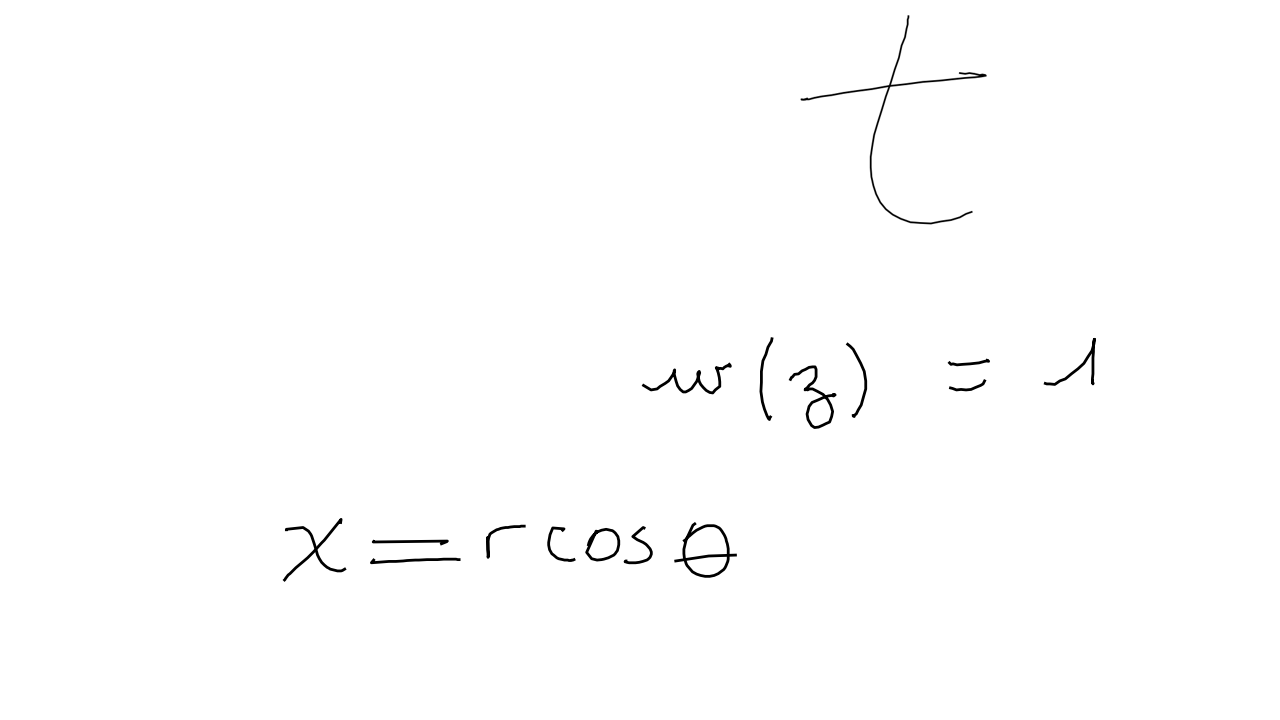 t
w(z) = 1
x = r cos θ